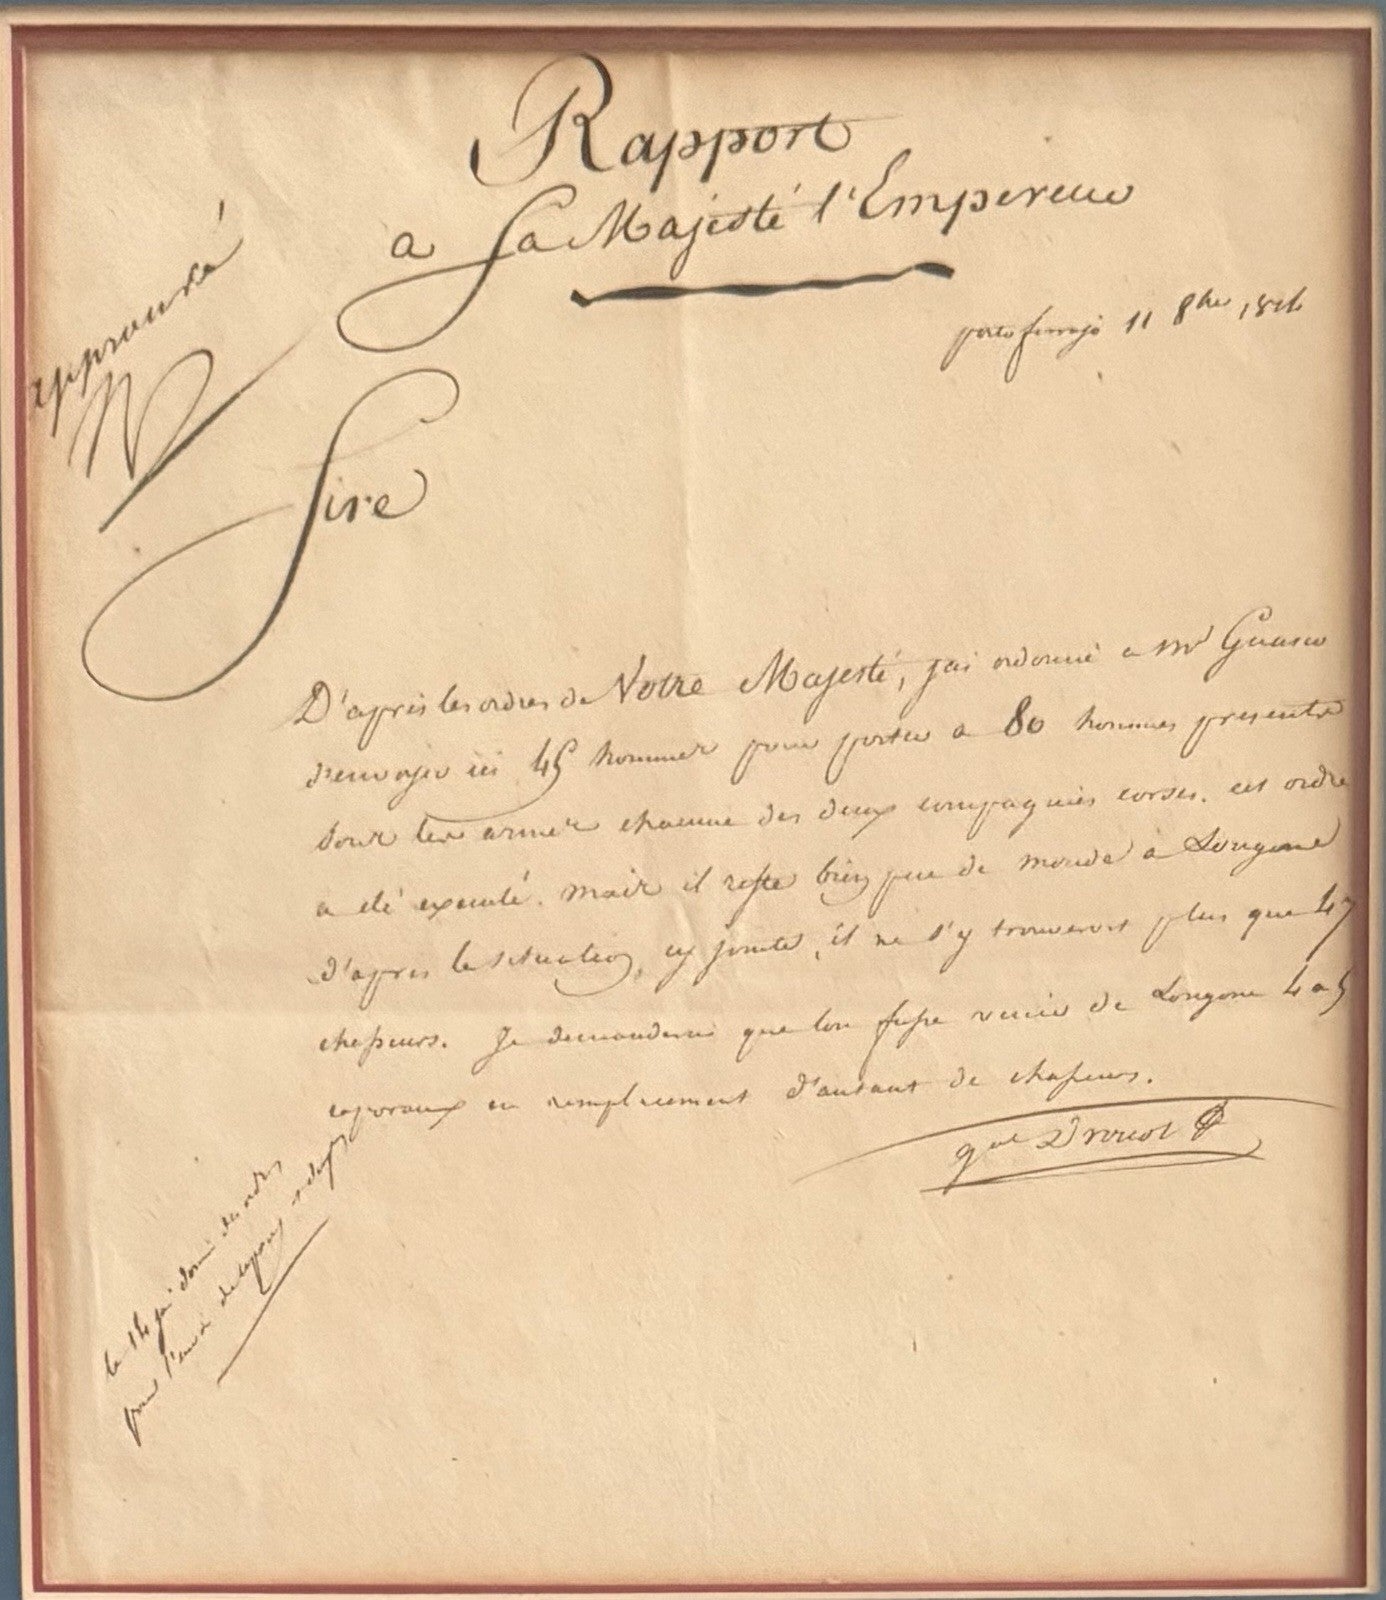 Rapport
a Sa Majesté l'Empereur
porto ferrajo 11 8bre 1814
approuvé
N
Sire
D'après les ordres de Votre Majesté, j'ai ordonné a mr Guasco
d'envoyer ici 45 hommes pour porter a 80 hommes presents
sous les armes chacune des deux compagnies corses. cet ordre
a été executé. mais il reste bien peu de monde à Longone
d'après la situation cy jointe, il ne s'y trouveroit plus que 47
chasseurs. Je demanderai que lon fasse venir de Longone 4 a 5
caporaux en remplacement d'autant de chasseurs.
gal Drouot
le 14 j'ai donné des ordres
pour l'envoi de